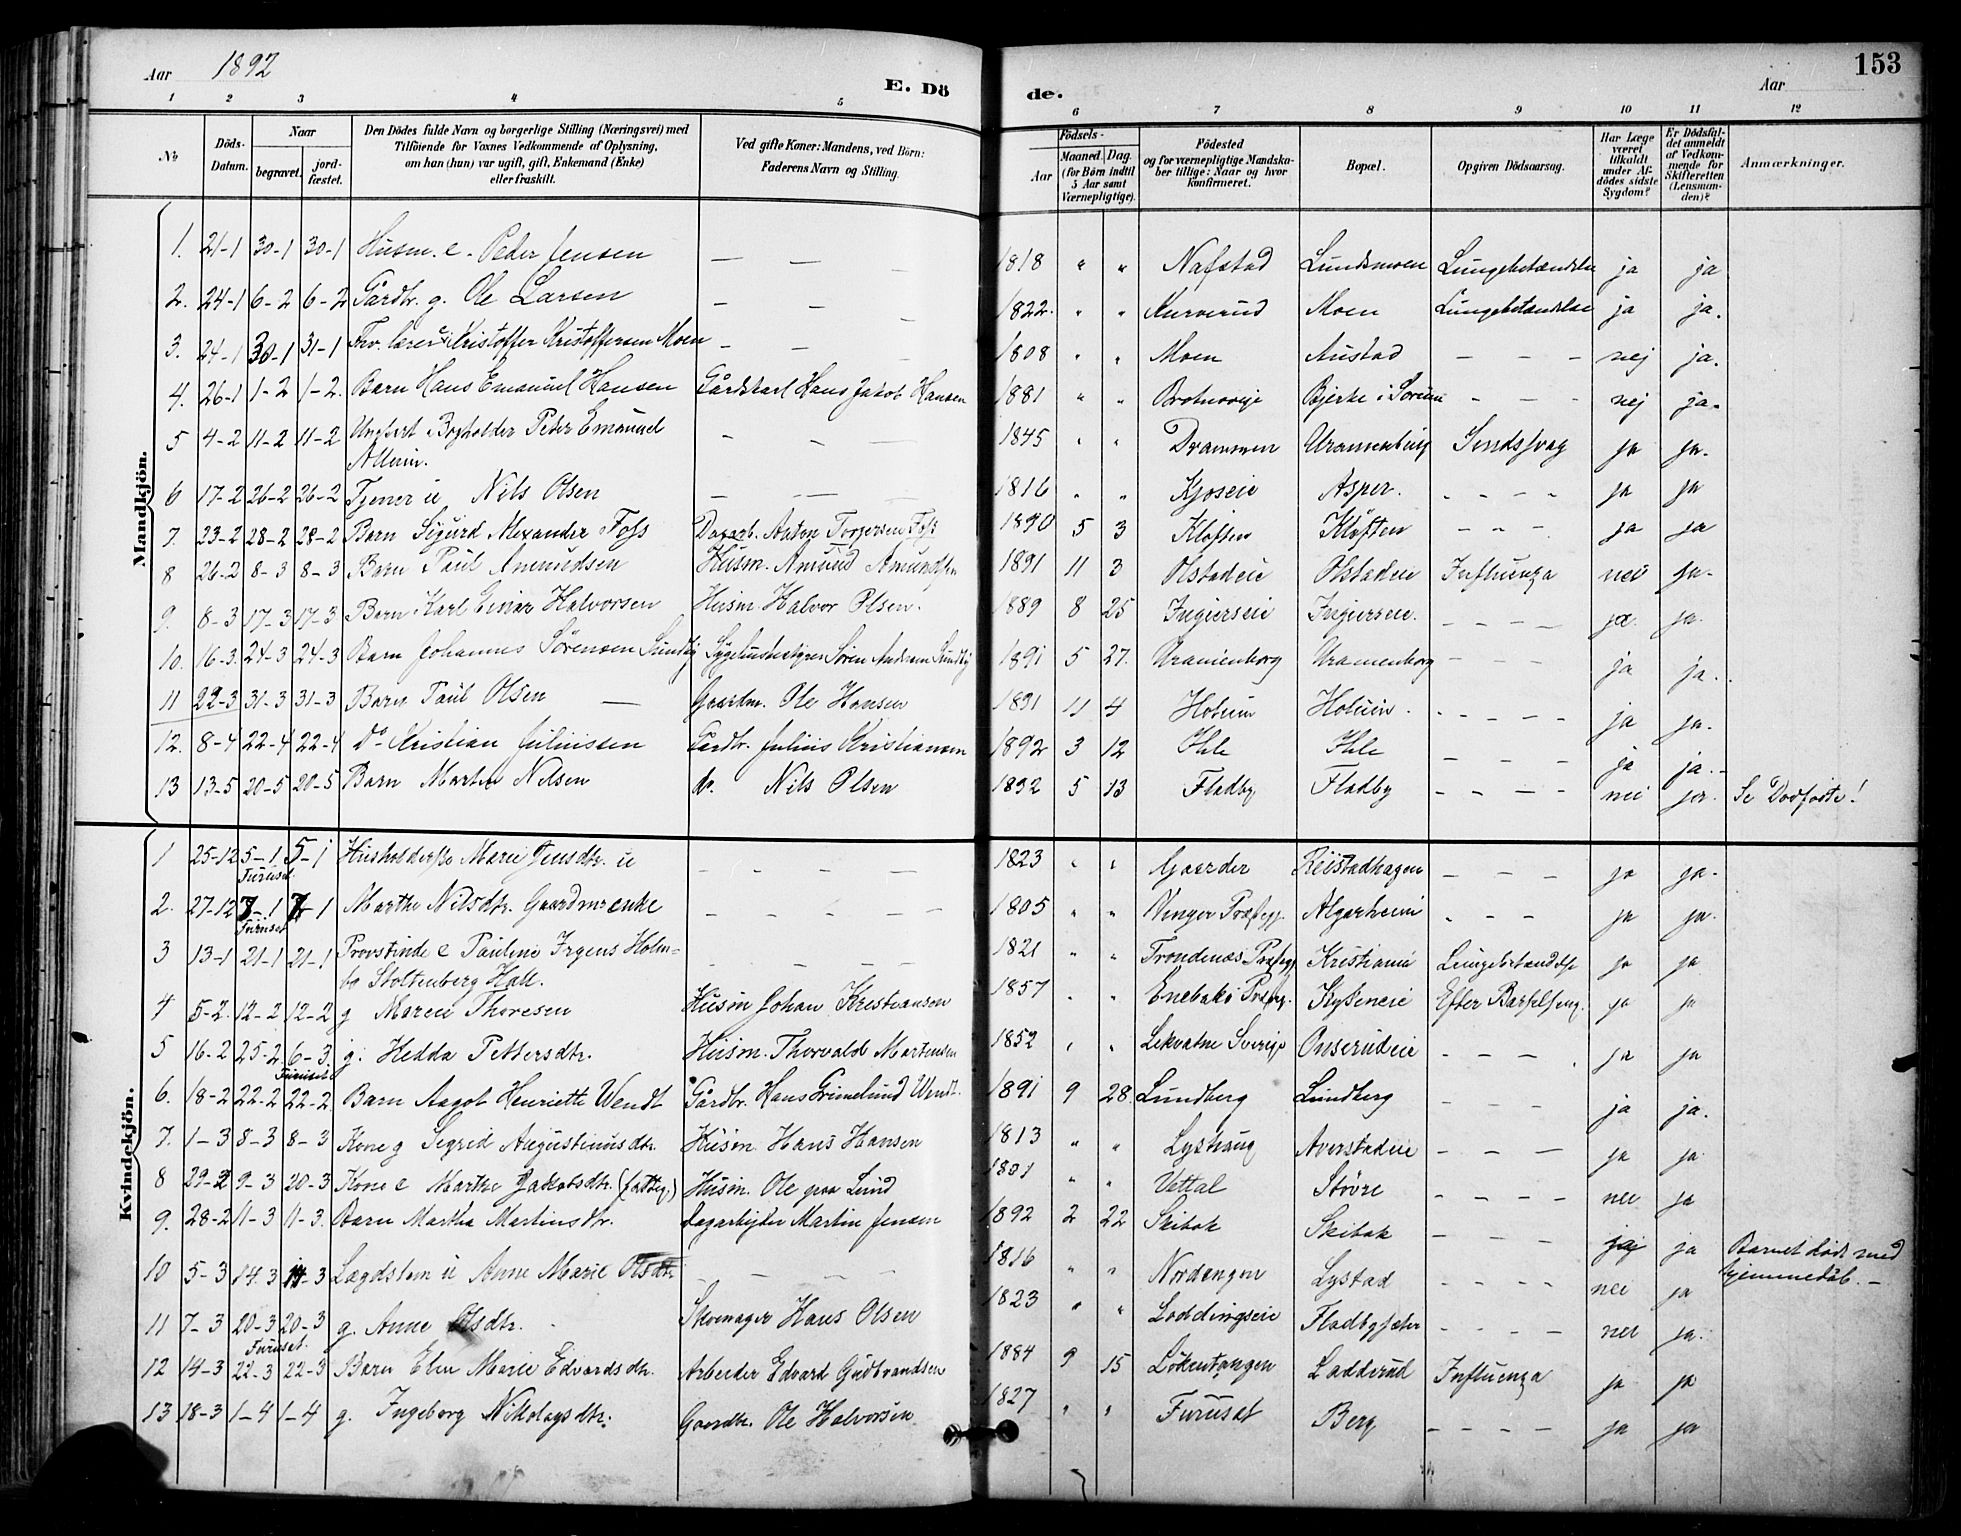 Aar 1892
E. Dö
de.
Aar
153
1 2 3 4 5 6 7 8 9 10 11 12
No
Döds-Datum.
Naar
begravet.
jord-fæstet.
Den Dödes fulde Navn og borgerlige Stilling (Næringsvei) med
Tilföiende for Voxnes Vedkommende af Oplysning,
om han (hun) var ugift, gift, Enkemand (Enke)
eller fraskilt.
Ved gifte Koner: Mandens, ved Börn:
Faderens Navn og Stilling.
Födsels-
Aar
Maaned. Dag.
(for Börn indtil
5 Aar samt
Værnepligtige).
Födested
og for værnepligtige Mandska-
ber tillige: Naar og hvor
konfirmeret.
Bopæl.
Opgiven Dödsaarsag.
Har Læge
været
tilkaldt
under Af-
dödes sidste
Sygdom?
Er Dödsfal-
det anmeldt
af Vedkom-
mende for
Skifteretten
(Lensman-
den)?
Anmærkninger.
Mandkjön.
1. 21-1 30-1 30-1 Husm. e. Peder Jensen — — — 1818 " " Nafstad Lundsmoen Lungebetændelse ja ja
2. 24-1 6-2 6-2 Gårdbr. g. Ole Larsen — — — 1822. " " Kurverud Moen Lungebetændelse ja ja.
3. 24-1 30-1 31-1 Fhv. lærer Kristoffer Kristoffersen Moen — — — 1808 " " Moen Austad — — — nej ja.
4. 26-1 1-2 1-2. Barn Hans Emanuel Hansen Gårdskarl Hans Jakob Hansen 1881 " " Brotnoveje Bjerke i Sörum — — — nej ja.
5 4-2 11-2 11-2 Ungkarl Bogholder Peder Emanuel — — — 1845 " " Drammen Uranienburg Sindssvag ja ja.
6 17-2 26-2 26-2 Tjener u Nils Olsen — — — 1816 " " Kjoseie Asper. — — — ja ja
7. 23-2 28-2 28-2 Barn Sigurd Alexander Foss Dagarb. Anton Torgersen Foss 1890 5 3 Kløften Kløften — — — ja ja
8 26-2 8-3 8-3 Barn Paul Amundsen Husm. Amund Amundsen 1891 11 3 Olstadeie Olstadeie Influenza nei ja.
9. 8-3 17-3 17-3 Barn Karl Einar Halvorsen Husm. Halvor Olsen. 1889 8 25 Ingierseie Ingierseie. — — — ja. ja.
10. 16-3. 24-3 24-3 Barn Johannes Sörensen Sundby Sören Andersen Sundby 1891 5 27. Uranienborg Uranienborg — — — ja ja.
11 22-3 31-3 31-3 Barn Paul Olsen — Gaardm. Ole Hansen 1891 11 4 Holum Holum. — — — ja ja.
12. 8-4 22-4 22-4 Do Kristian Juliussen Gårdbr. Julius Kristiansen 1892 3 12 Ihle Ihle — — — ja ja.
13 13-5 20-5 20-5 Barn Martin Nilsen do. Nils Olsen 1892 5 13 Fladby Fladby — — — nei ja. Se Dødfødte!
Kvindekjön.
1 25-12 5-1 5-1 Husholderske Marie Jensdtr. u — — — 1823 " " Gaarder Reistadhagen — — — ja ja.
Furuset.
2. 27-12 7-1 7-1 Marthe Nilsdtr. Gaardmr.enke — — — 1805 " " Vinger Præstegj. Algarheim — — — ja ja.
Furuset
3 13-1 21-1 21-1 Provstinde e Pauline Irgens Holm- — — — 1821 " " Trondenæs Præstegj. Kristiania Lungebetændelse ja ja
bo Stoltenberg Hall.
4 5-2. 12-2 12-2 g Maren Thoresen Husm Johan Kristianson 1857 " " Enebak Præstegj. Efter Barselseng. ja ja
5 16-2 25-2 6-3 g. Hedda Pettersdtr. Husm. Thorvald Martinsen 1852 " " Lekvatne Sverige Onserudeie — — — ja ja
Furuset
6. 18-2 22-2 22-2 Barn Aagot Henriette Wendt Gårdbr. Hans Grimelund Wendt. 1891 9 28. Lundberg Lundberg — — — ja ja.
7. 1-3 8-3 8-3 Kone g Sigrid Augustinusdtr. Husm. Hans Hansen 1813 " " Lyshaug Averstadeie — — — ja ja
8 29-2 9-3 20-3 Kone e Marthe Jakobsdtr. (fattig) Husm. Ole paa Lund 1801 " " Vettal Støvre — — — nei ja
9. 28-2 11-3 11-3. Barn Martha Martinsdtr. Dagarbejder Martin Jensen 1892 2 22 Skibak Skibak — — — ja ja Barnet døbt med
hjemmedåb. —
10 5-3 14-3 14-3 Lægdslem u Anne Marie Olsdtr — — — 1816 " " Nordengen Lystad — — — nei ja
11 7-3 20-3 20-3 g. Anne Olsdtr. Skomager Hans Olsen 1823 " " Loddingseie Fladbysæter — — — nei ja.
Furuset.
12 14-3 22-3 22-3 Barn Elen Marie Edvardsdtr. Arbeider Edvard Gudbrandsen 1884 9 15 Lökentangen Ladderud Influenza ja ja
13 18-3 1-4 1-4 g. Ingeborg Nikolaysdtr. Gaardbr. Ole Halvorsen 1827 " " Furuset Berg — — — ja ja